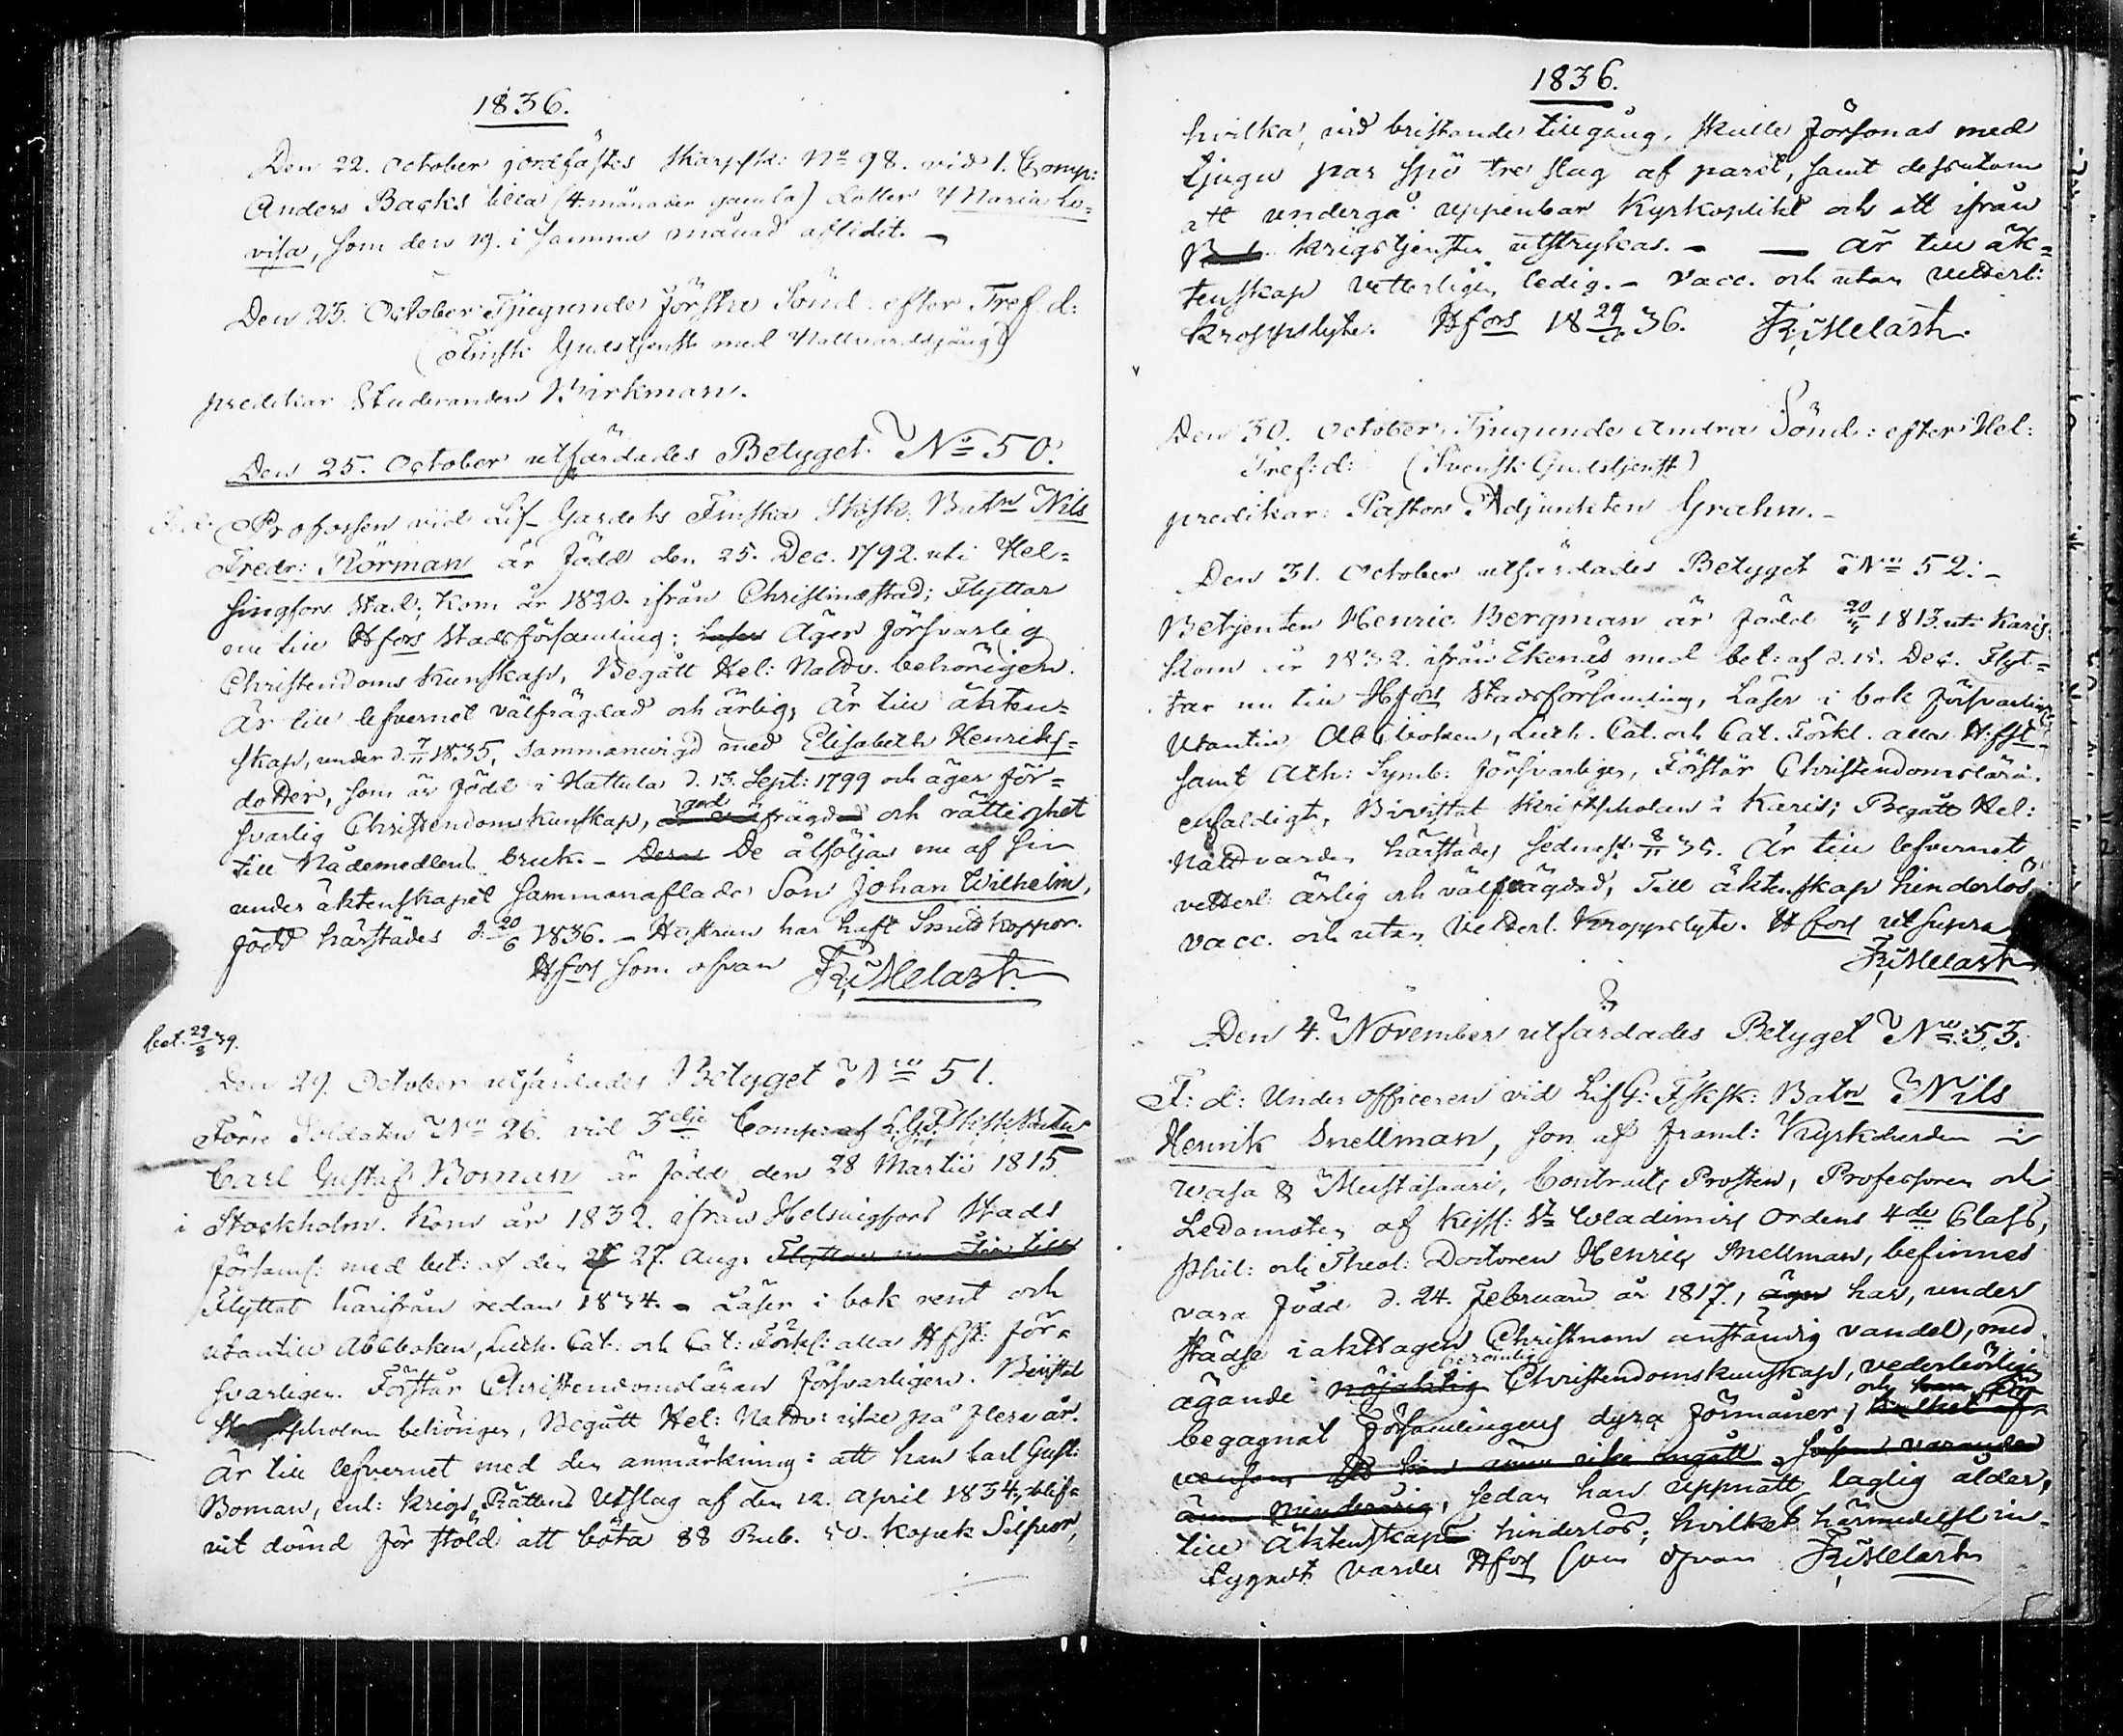 1836.
Den 22. October jordfästes Skarpsk: No 98. vid 1. Comp:
Anders Backs lilla (4. månader gamla) dotter Maria Lo=
visa, som den 19. i samma månad aflidit. —
Den 23. October Tjugunde Förste Sönd. efter Tref. d:
(Finsk Gudstjenst med Nattvardsgång)
predikar Studeranden Birkman.
Den 25. October utfärdades Betyget No 50.
F.d. Profossen vid Lif-Gardets Finska Skarpsk. Batn Nils
Fredr: Flörman är född den 25. Dec. 1792. uti Hel=
singfors Stad; Kom år 1820. ifrån Christinæstad; Flyttar
nu till Hfors Stadsförsamling; Läser Äger försvarlig
Christendoms Kunskap, Begått Hel: Nattv. behörigen.
Är till lefvernet välfrägdad och ärlig; Är till äkten=
skap, under d. 7/11 1835, sammanvigd med Elisabeth Henriks=
dotter, som är född i Hattula d. 13. Sept: 1799 och äger för=
svarlig Christendomskunskap, god frägd och rättighet
till Nådemedlens bruk. – Deras De åtföljas nu af sin
under äktenskapet sammanaflade Son Johan Wilhelm,
född härstädes d. 20/6 1836. – Hustrun har haft Smittkoppor.
Hfors som ofvan Fr: Melart.
bet. 29/3 39.
Den 29. October utfärdades Betyget No 51.
Förre Soldaten No 26. vid 3dje Comp: af L.G.F. Skarpsk. Batn
Carl Gustaf Boman är född den 28 Martii 1815
i Stockholm. Kom år 1832. ifrån Helsingfors Stads
församl: med bet: af den 27. Aug. Flyttar nu till
Flyttat härifrån redan 1834. – Läser i bok rent och
utantill Abcboken, Luth. Cat. och Cat: Förkl: alla Hfst: för=
svarligen. Förstår Christendomsläran försvarligen. Bevistat
Skriftskolan behörigen, Begått Hel: Nattv: icke på flera år.
Är till lefvernet med den anmärkning: att han Carl Gust:
Boman, enl: Krigs Rättens Utslag af den 12. April 1834, blif=
vit dömd för stöld att böta 88 Rub. 50. Kopek Silfver,
1836.
hvilka, vid bristande tillgång, skulle försonas med
tjugu par spö tre slag af paret, samt dessutom
att undergå uppenbar Kyrkoplikt och att ifrån
Krigstjensten utstrykas. – — Är till äk=
tenskap vetterligen ledig. – Vacc. och utan vetterl:
kroppslyte. Hfors 18 29/10 36. Fr: Melart.
Den 30. October, Tjugunde Andra Sönd: efter Hel:
Tref: d: (Svensk Gudstjenst)
predikar: Pastors Adjunkten Grahn. –
Den 31. October utfärdades Betyget No 52. –
Betjenten Henric Bergman är född 20/11 1813. uti Karis;
Kom år 1832. ifrån Ekenäs med bet: af d. 15. Dec. Flyt=
tar nu till Hfors Stadsförsamling, Läser i bok försvarligen
Utantill Abcboken, Luth. Cat. och Cat. Förkl. alla Hfst
samt Ath: Symb: försvarligen, Förstår Christendomslära.
enfaldigt, Bivistat Skriftskolan i Karis; Begått Hel:
Nattvarden härstädes sednast 8/11 35. Är till lefvernet
vetterl: ärlig och välfrägdad, Till äktenskap hinderlös,
vacc. och utan Vetterl. Kroppslyte. Hfors ut supra
Fr: Melart
Den 4. November utfärdades Betyget No: 53.
F: d: Underofficeren vid Lif G: Fsksk: Batn Nils
Henrik Snellman, son af framl: Kyrkoherden i
Wasa & Mustasaari, Contracts Prosten, Professoren och
Ledamoten af Kejsl: St Wladimirs Ordens 4de Class,
Phil: och Theol: Doctoren Henric Snellman, befinnes
vara född d. 24. Februarii år 1817, äger har, under
städse iakttagen Christnom anständig vandel, med
ägande nöjaktig berömlig Christendomskunskap, vederbörligen
begagnat församlingens dyra förmåner, och hvilket
han ännu icke ingått, såsom varande
ännu minderårig, sedan han uppnått laglig ålder,
till Äktenskap hinderlös; hvilket härmedelst in=
tygadt varder Hfors som ofvan Fr: Melart